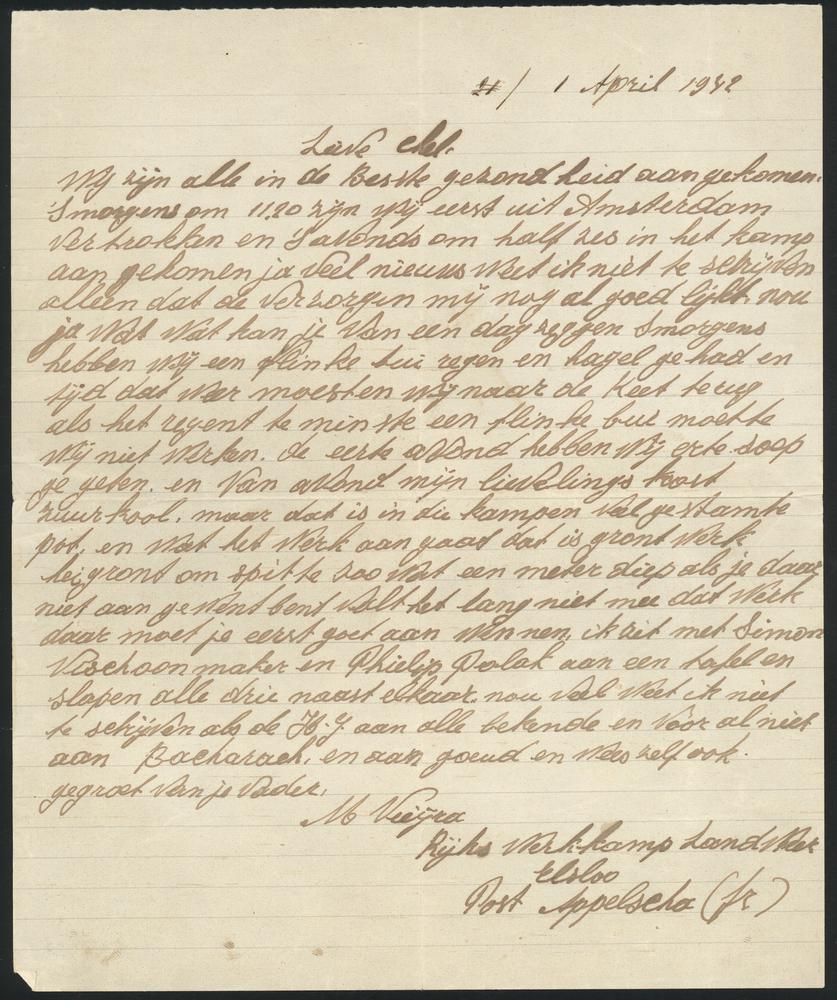 1 April 1942
Lieve Chel.
Wij zijn alle in de Beste gezondheid aangekomen.
Smorgens om 11.20 zijn wij eerst uit Amsterdam
vertrokken en Savonds om half zes in het kamp
aan gekomen ja veel nieuws weet ik niet te schrijven
alleen dat de versorgin mij nog al goed lijkt. nou
ja wat kan je van een dag zeggen Smorgens
hebben wij een flinke bui regen en hagel gehad en
tijd dat weer moesten wij naar de Keet terug
als het regent te min ste een flinke bui moette
wij niet werken. de eerste avond hebben wij erte soep
ge geten. en van avond mijn lievelings kost
zuurkool. maar dat is in die kampen veel gestamte
pot, en wat het werk aan gaat dat is gront werk
heigront om spitte zoo wat een meter diep als je daar
niet aan gewent bent valt het lang niet mee dat werk
daar moet je eerst goet aan wennen. ik zit met Simon
Vischoonmaker en Philip Polak aan een tafel en
slapen alle drie naast elkaar. nou veel weet ik niet
te schijven als de H.G aan alle bekende en voor al niet
aan Bacharach. en aan goeud en wees zelf ook.
gegroet van je vader.
M Vieijra
Rijks Werk-kamp Landweer
Elsloo
Post Appelscha (fr)